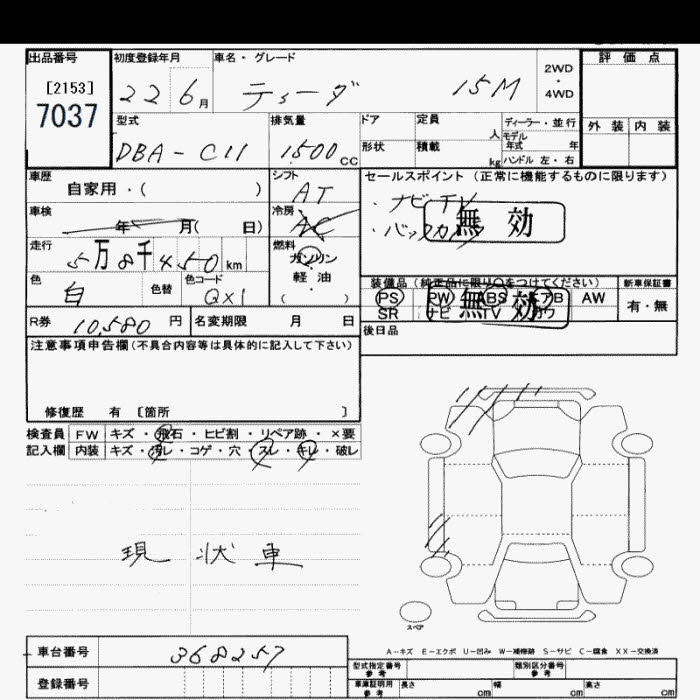 出品番号 初度登録年月 車名・グレード 2WD ・ 4WD 評価点
[2153] 22 6月 ティーダ 15M
7037
型式 排気量 ドア 定員 人 ディーラー・並行 外装 内装
DBA-C11 1500cc 形状 積載 kg モデル年式 年 ハンドル 左・右
車歴 自家用・( ) シフト AT セールスポイント (正常に機能するものに限ります)
車検 年 月( 日) 冷房 AC ・ナビTV
・バックカメラ
無効
走行 5万8千450km 燃料 ガソリン 軽油 ( )
色 白 色替 色コード QX1
装備品 (純正品に限り○をつけてください) 新車保証書
PS PW ABS エアB AW 有・無
SR ナビ TV カワ
無効
R券 10,580円 名変期限 月 日 後日品
注意事項申告欄(不具合内容等は具体的に記入して下さい)
修復歴 有 [箇所 ]
検査員 FW キズ・飛石・ヒビ割・リペア跡・×要
記入欄 内装 キズ・汚レ・コゲ・穴・スレ・キレ・破レ
現状車
スペア
A－キズ E－エクボ U－凹み W－補修跡 S－サビ C－腐食 XX－交換済
車台番号 368257
登録番号
型式指定番号 参考 類別区分番号 参考
車庫証明用 参考 長さ cm 幅 cm 高さ cm